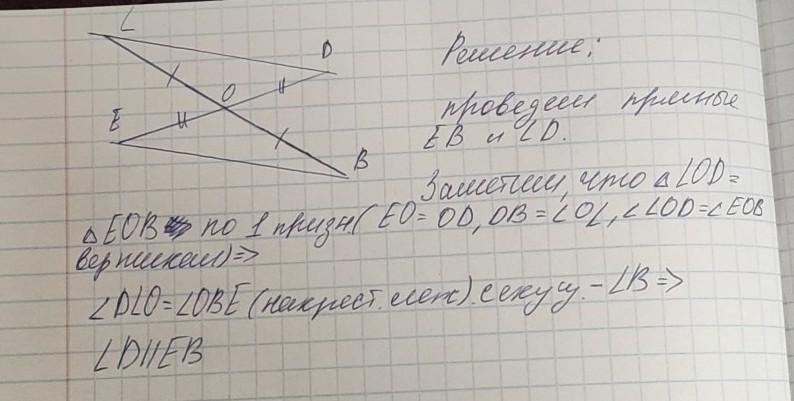 L
D
O
E
B
Решение:
проведем прямые
EB и LD.
Заметим, что △LOD=
△EOB по 1 призн(EO=OD, OB=∠OL, ∠LOD=∠EOB
вертикал)=>
∠DLO=∠OBE (накрест. леж). секущ. - LB =>
LD||EB